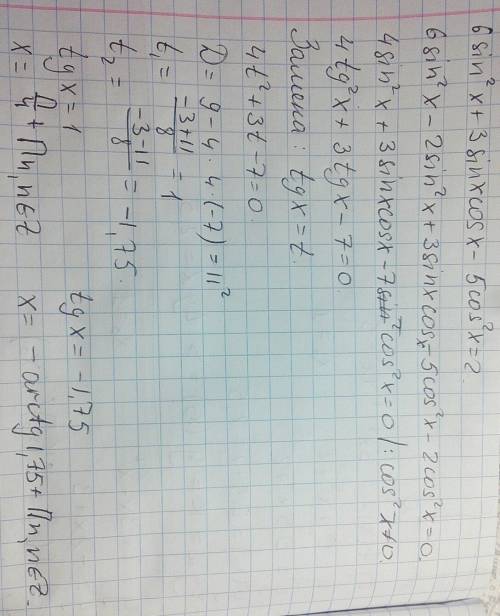 6sin²x + 3sinxcosx - 5cos²x = 2.
6sin²x - 2sin²x + 3sinxcosx - 5cos²x - 2cos²x = 0.
4sin²x + 3sinxcosx - 7cos²x = 0 /: cos²x ≠ 0.
4tg²x + 3tgx - 7 = 0.
Замена: tgx = t.
4t² + 3t - 7 = 0.
D = 9 - 4 · 4 · (-7) = 11²
t₁ = (-3+11)/8 = 1
t₂ = (-3-11)/8 = -1,75.
tgx = 1 tgx = -1,75
x = П/4 + Пn, n∈Z x = -arctg1,75 + Пn, n∈Z.